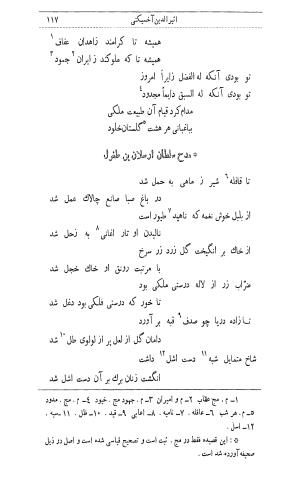 اثیرالدین اخسیکتی ۱۱۷
همیشه تا کرامند زاهدان عفاف ۱
همیشه تا که ملوکند زایران ۲ جمود ۳
تو بودی آنکه له الفضل زایراً امروز
تو بودی آنکه له السبق دایماً مجدود ۴
مدام کرد قیام آن طبیعت ملکی
بباغبانی هر هشت ۵ گلستان خلود
* مدح سلطان ارسلان بن طغرل
تا قافله ۶ شیر ز ماهی به حمل شد
در باغ صبا صانع چالاك عمل شد
از بلبل خوش نغمه که ناهید ۷ طیور است
نالیدن او تار اغانی ۸ به زحل شد
از خاك بر انگیخت گل زرد زر سرخ
با مرتبت رونق او خاك خجل شد
ضراب زر از لاله درستی ملکی بود
تا خور که درستی فلکی بود دغل شد
تا زاده دریا چو صدف ۹ قبه بر آورد
دامان گل از لعل پر از لولوی طل ۱۰ شد
شاخ متمایل شبه ۱۱ دست اشل ۱۲ داشت
انگشت زنان برك بر آن دست اشل شد
۱ـ م. مج عقاب ۲ـ م و امیران ۳ـ م. جهود مج. خیود ۴ـ م. مج. مدود
۵ـ م. هر شب ۶ـ عافله. ۷ـ نامیه. ۸ـ اعابی ۹ـ قبد. ۱۰ـ ظل. ۱۱ـ سبه.
۱۲ـ اسل.
* : این قصیده فقط در مج. ثبت است و تصحیح قیاسی شده است و اصل در ذیل
صحیفه آورده شده است.